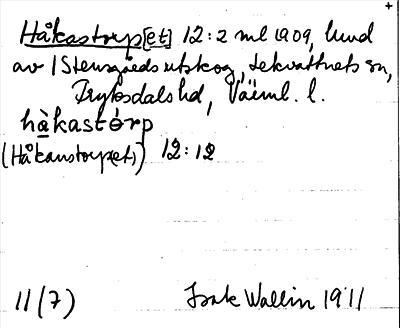 Håkastorp[et] 12:2 ml 1909, lund
av 1 Stensgårds utskog, Lekvattnets sn,
Fryksdals hd, Värml. l.
hàkastórp
(Håkanstorpet) 12:12
11 (7) Isak Wallin 1911